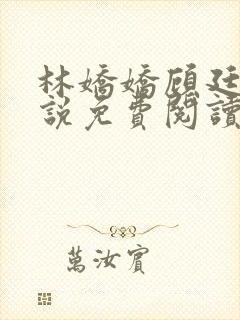 林嬌嬌顧廷
說免費閱讀
萬汝賓